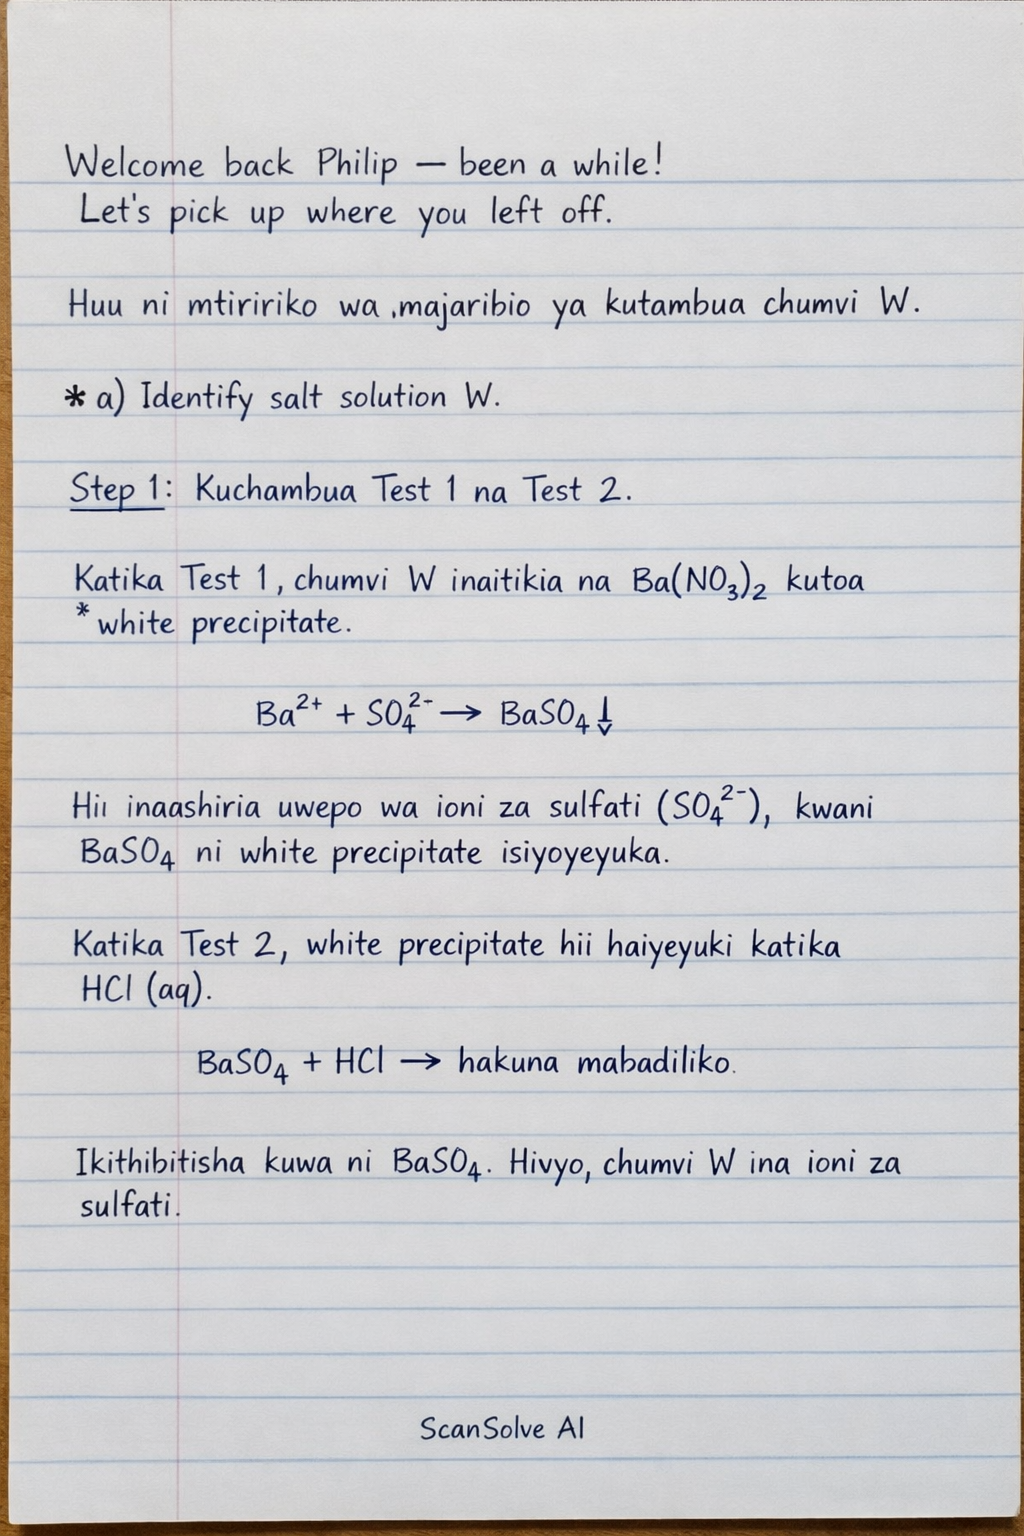 Welcome back Philip — been a while!
Let's pick up where you left off.
Huu ni mtiririko wa .majaribio ya kutambua chumvi W.
* a) Identify salt solution W.
Step 1: Kuchambua Test 1 na Test 2.
Katika Test 1, chumvi W inaitikia na Ba(NO₃)₂ kutoa
* white precipitate.
Ba²⁺ + SO₄²⁻ → BaSO₄↓
Hii inaashiria uwepo wa ioni za sulfati (SO₄²⁻), kwani
BaSO₄ ni white precipitate isiyoyeyuka.
Katika Test 2, white precipitate hii haiyeyuki katika
HCl (aq).
BaSO₄ + HCl → hakuna mabadiliko.
Ikithibitisha kuwa ni BaSO₄. Hivyo, chumvi W ina ioni za
sulfati.
ScanSolve AI